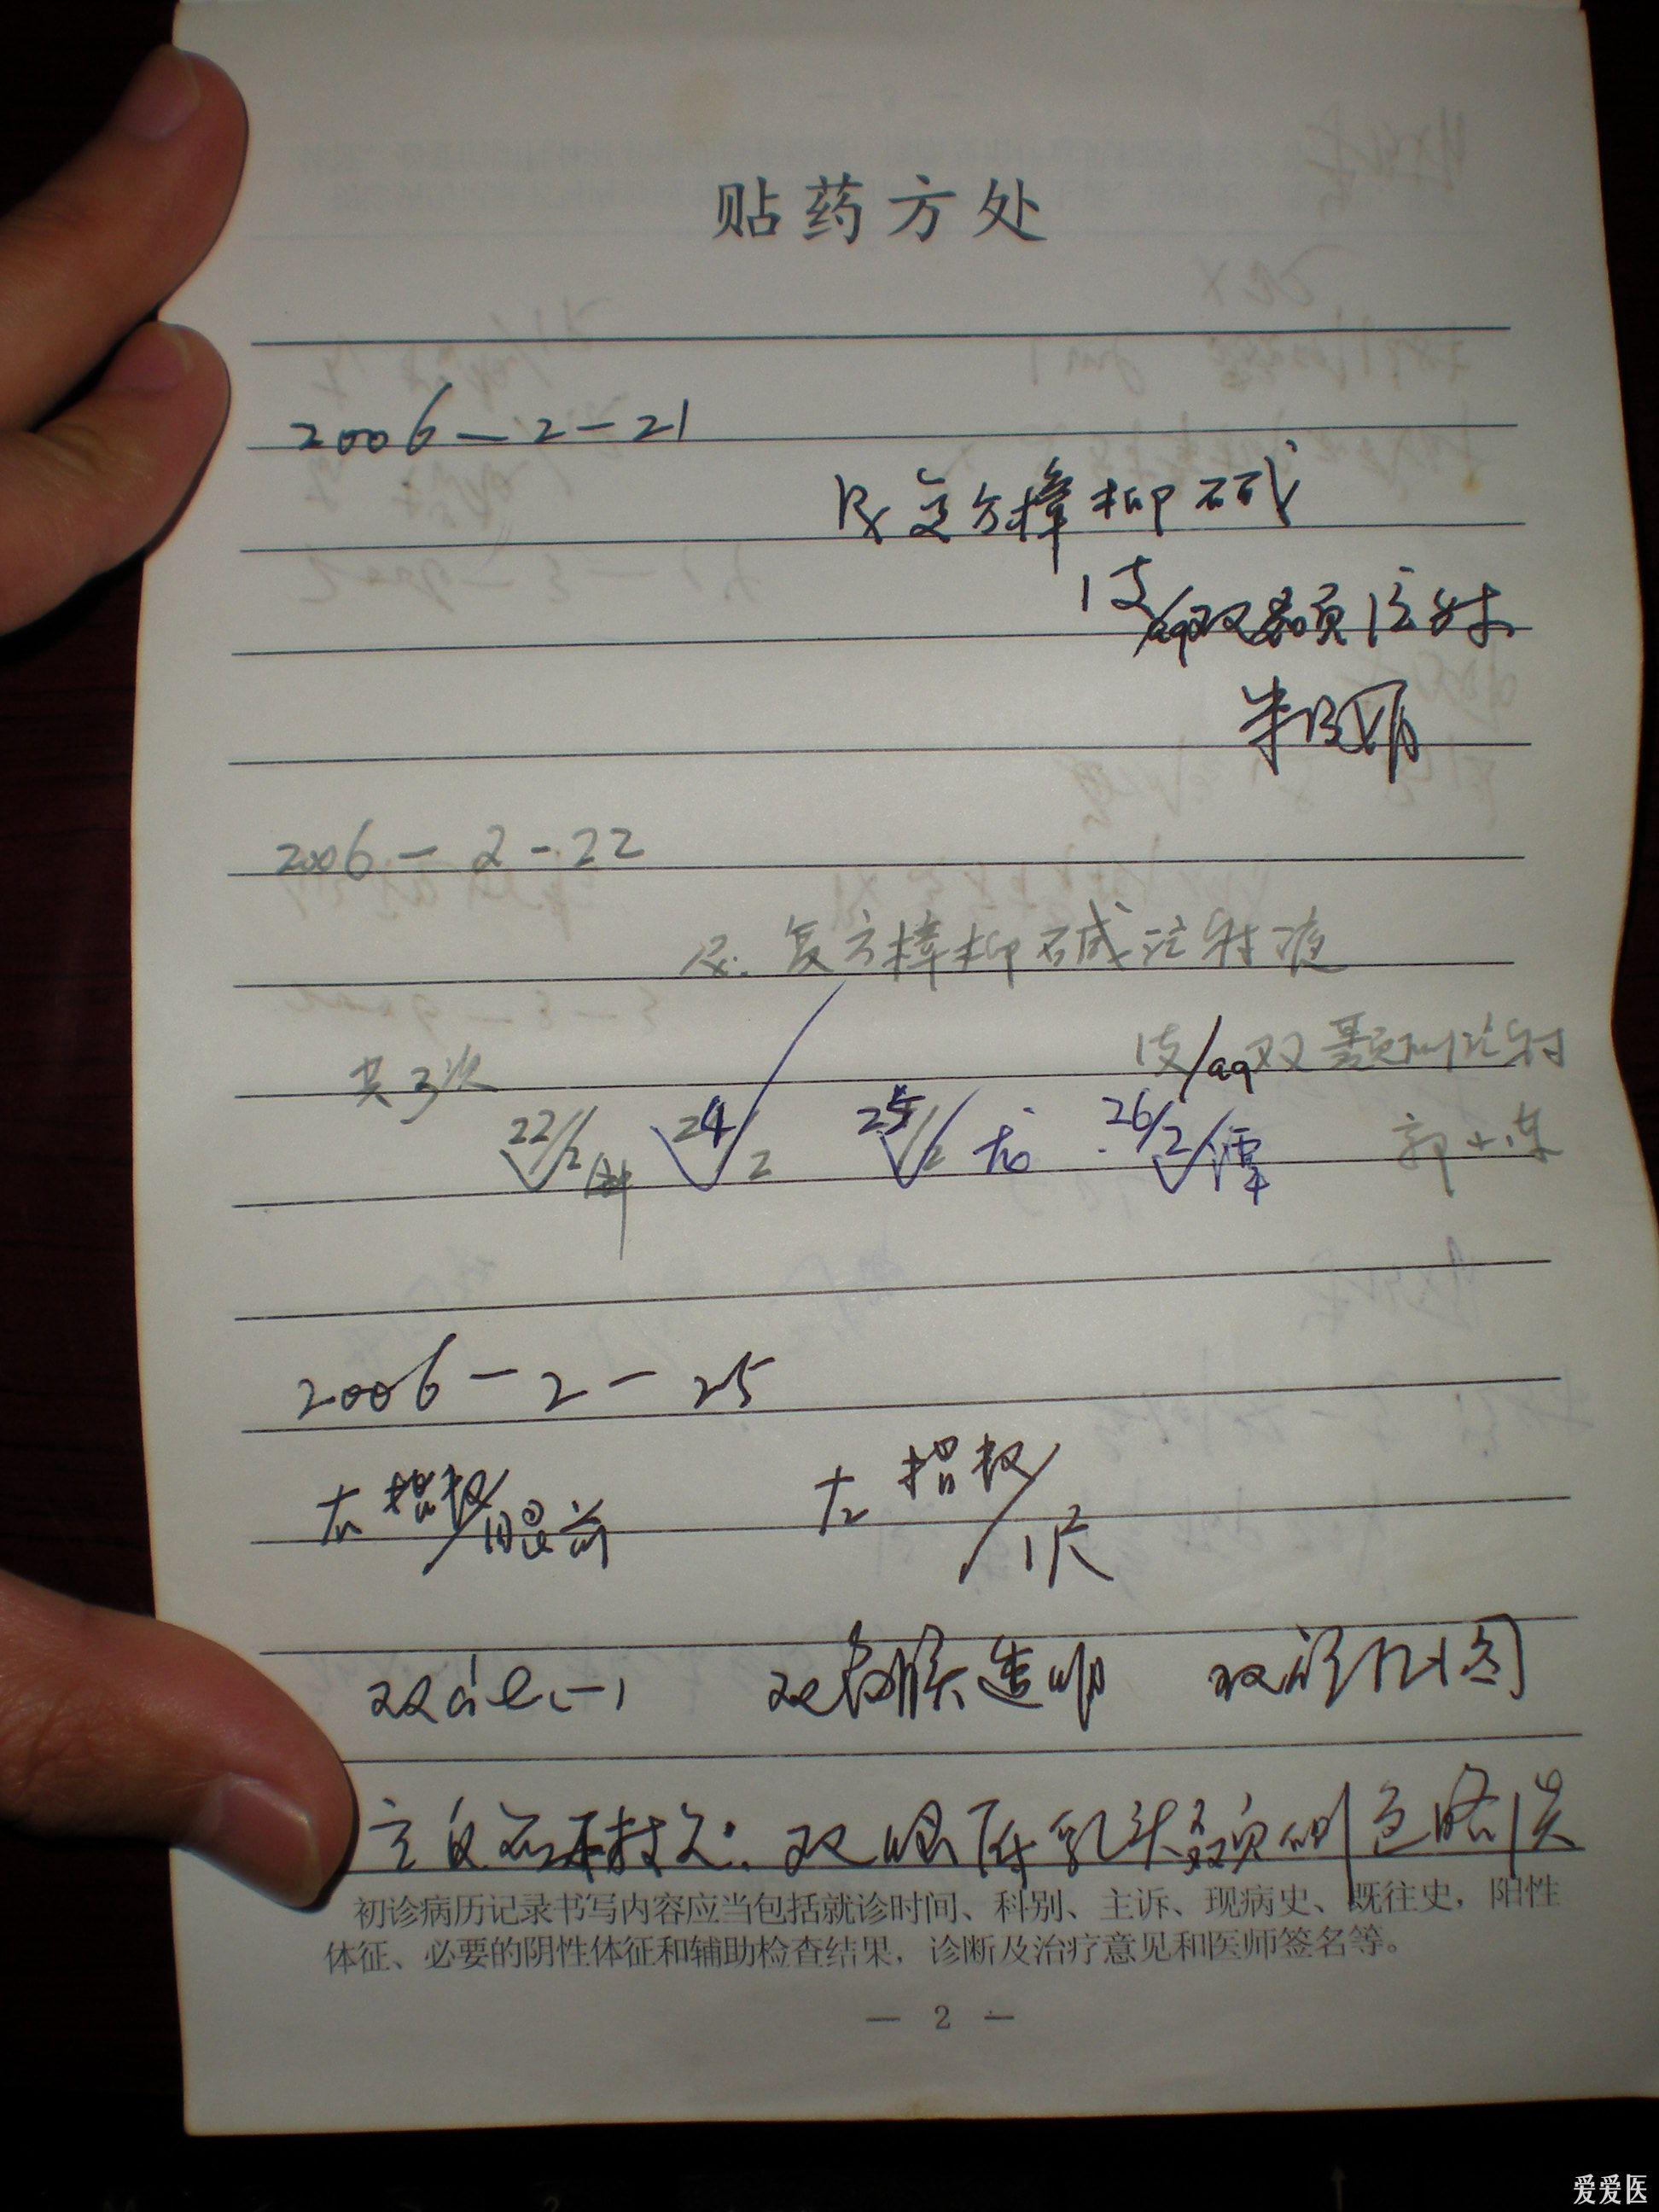 贴药方处
2006-2-21
Rx 复方樟柳碱
1支/aq 双颞注射
2006-2-22
R: 复方樟柳碱注射液
1支/aq 双颞侧注射
共3次
22/2 24/2 25/2 26/2 谭
2006-2-25
右 指数/眼前 左 指数/1尺
双 造明 双
双眼底乳头颞侧色略淡
初诊病历记录书写内容应当包括就诊时间、科别、主诉、现病史、既往史，阳性
体征、必要的阴性体征和辅助检查结果，诊断及治疗意见和医师签名等。
— 2 —
爱爱医